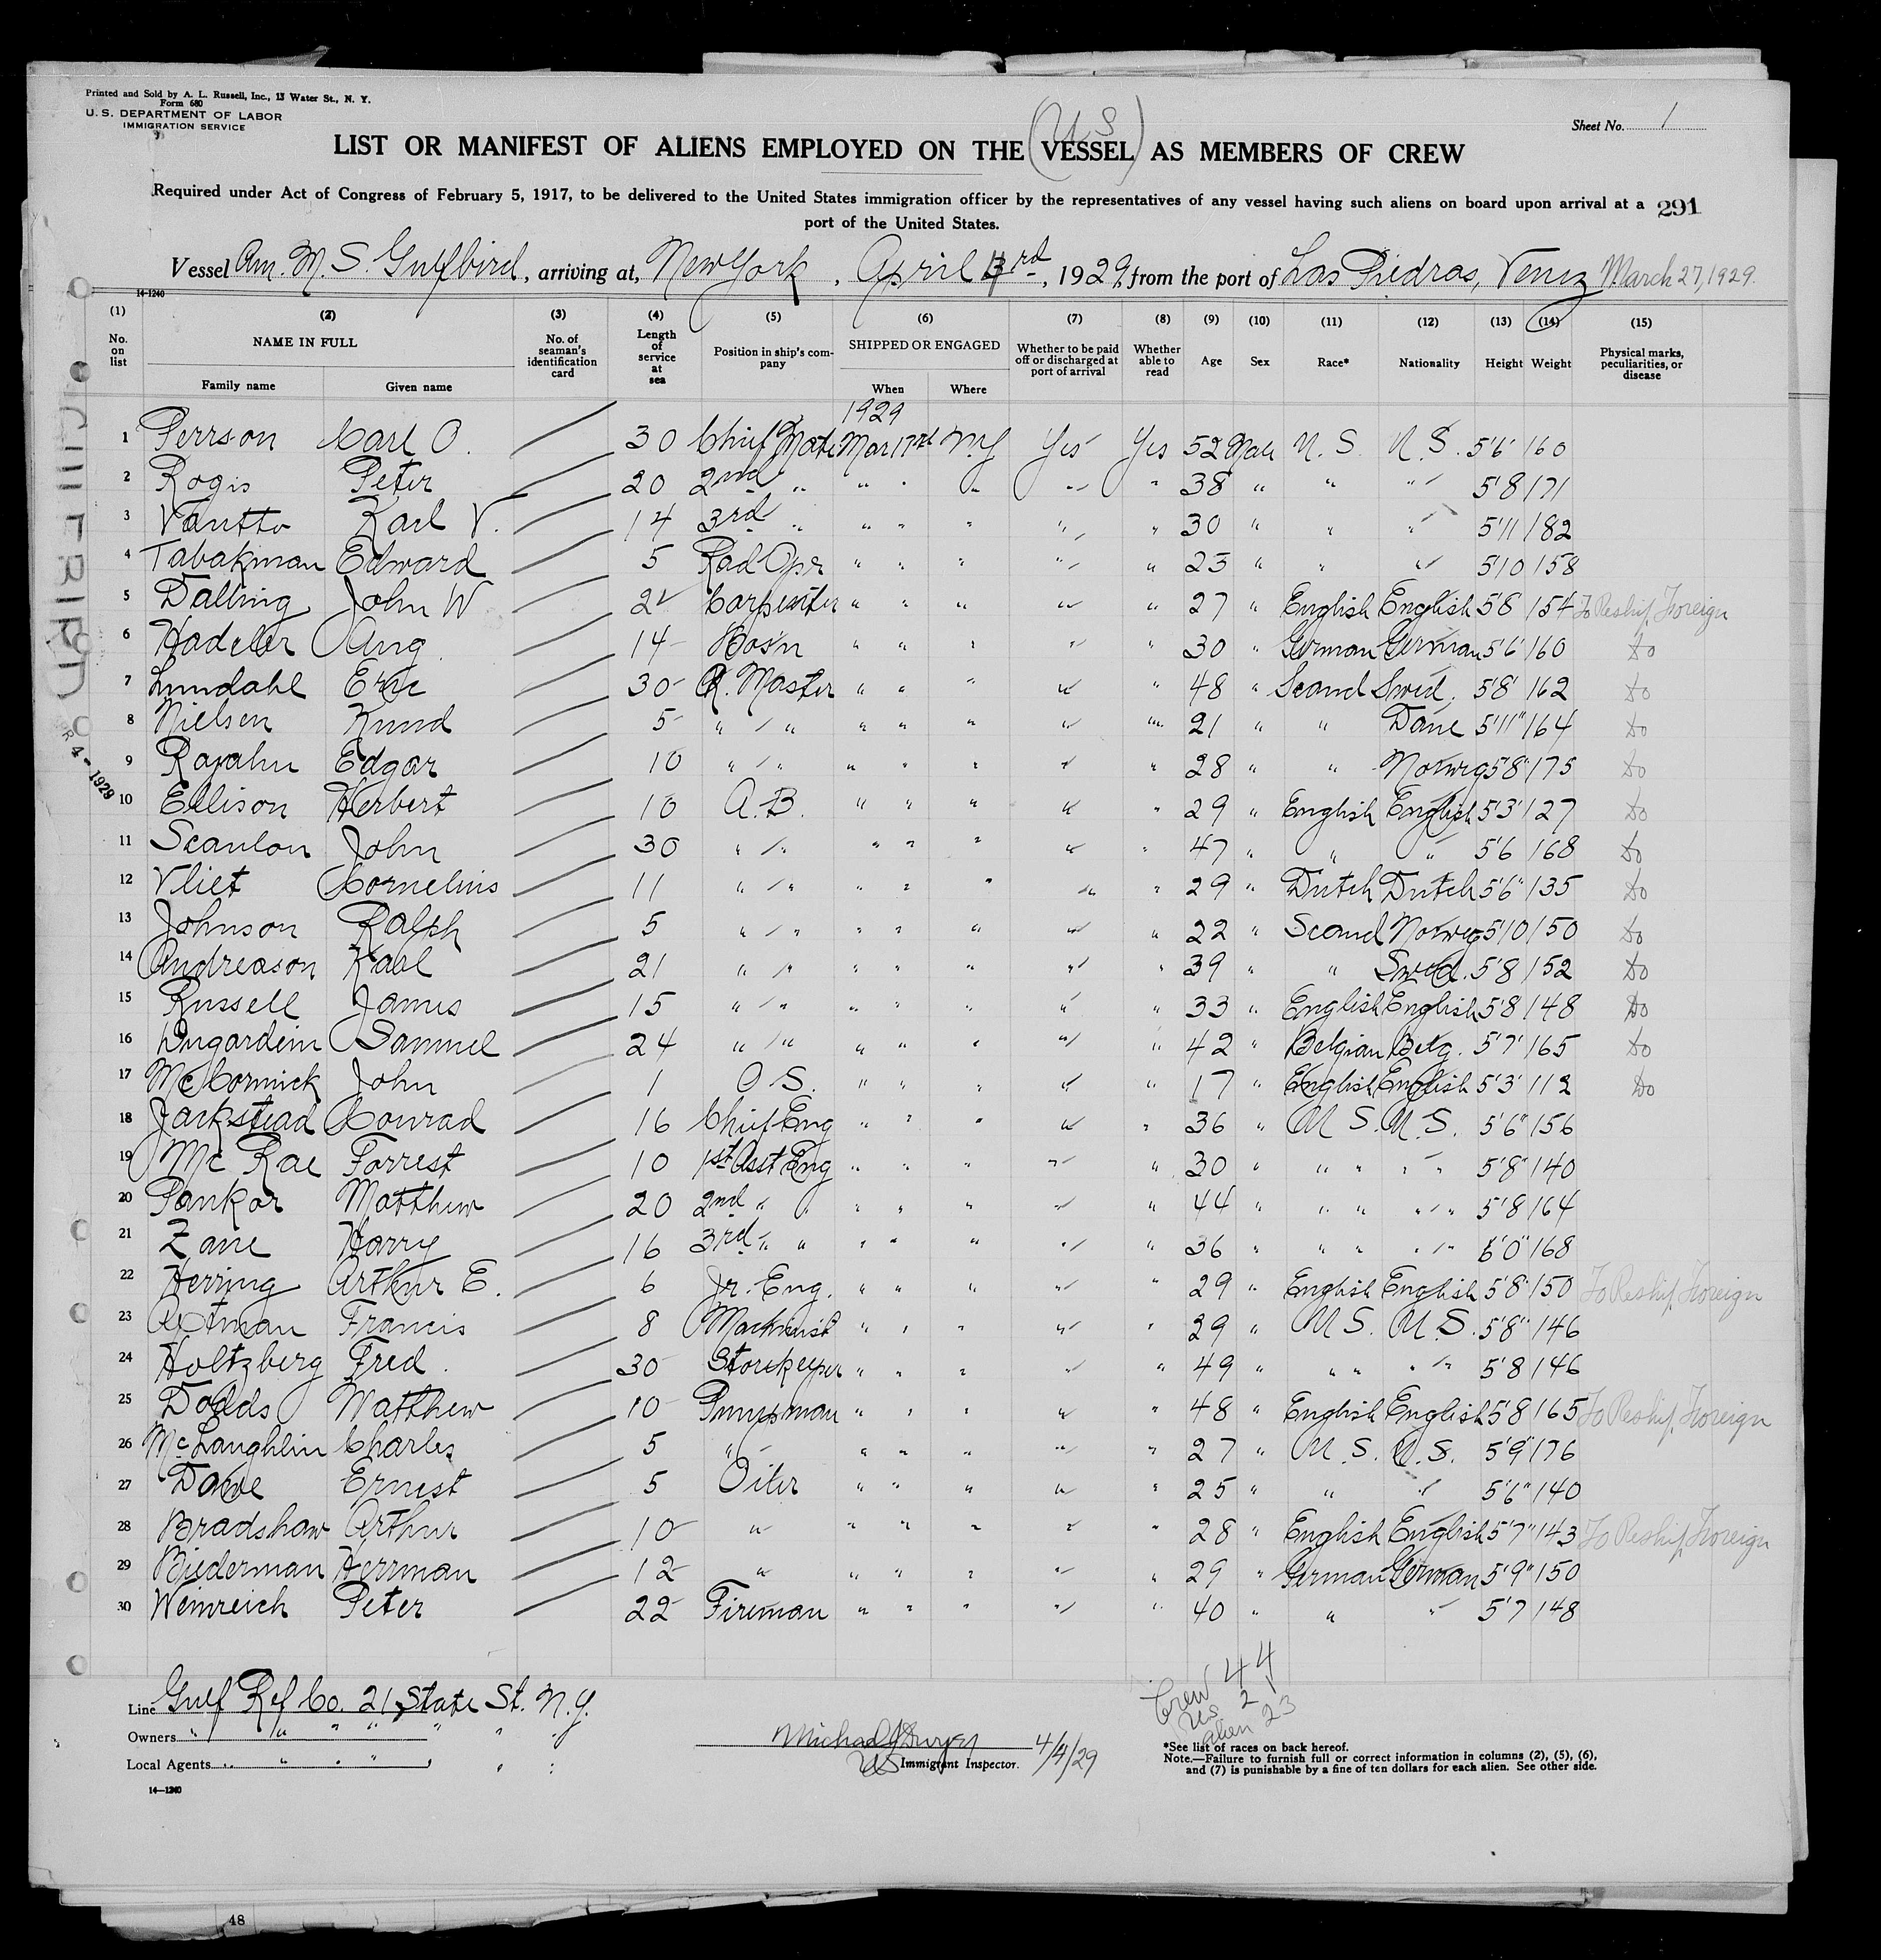 Printed and Sold by A. L. Russell, Inc., 13 Water St., N. Y.
Form 680
U. S. DEPARTMENT OF LABOR
IMMIGRATION SERVICE
Sheet No. 1
(U S)
LIST OR MANIFEST OF ALIENS EMPLOYED ON THE VESSEL AS MEMBERS OF CREW
Required under Act of Congress of February 5, 1917, to be delivered to the United States immigration officer by the representatives of any vessel having such aliens on board upon arrival at a
port of the United States.
291
Vessel Am. M. S. Gulfbird, arriving at, New York, April 3rd, 1929, from the port of Las Piedras, Venez March 27, 1929.
14-1240
(1) (2) (3) (4) (5) (6) (7) (8) (9) (10) (11) (12) (13) (14) (15)
No. on list NAME IN FULL Family name Given name No. of seaman's identification card Length of service at sea Position in ship's company SHIPPED OR ENGAGED When Where Whether to be paid off or discharged at port of arrival Whether able to read Age Sex Race* Nationality Height Weight Physical marks, peculiarities, or disease
1929
1 Perrson Carl O. 30 Chief Mate Mar 17th N.Y Yes Yes 52 Male U. S. U. S. 5'6 160
2 Rogis Peter 20 2nd " " " " " " 38 " " " 5'8 171
3 Vantto Karl V. 14 3rd " " " " " " 30 " " " 5'11 182
4 Tabakman Edward 5 Rad Opr " " " " " 23 " " " 5'10 158
5 Dalling John W 22 Carpenter " " " " " 27 " English English 5'8 154 To Reship Foreign
6 Hadeler Aug 14 Bos'n " " " " " 30 " German German 5'6 160 do
7 Lundahl Eric 30 Q. Master " " " " " 48 " Scand Swed. 5'8 162 do
8 Nielsen Knud 5 " " " " " " " 21 " " Dane 5'11" 164 do
9 Rajahn Edgar 10 " " " " " " " 28 " " Norweg 5'8" 175 do
10 Ellison Herbert 10 A. B. " " " " " 29 " English English 5'3 127 do
11 Scanlon John 30 " " " " " " " 47 " " " 5'6 168 do
12 Vliet Cornelius 11 " " " " " " " 29 " Dutch Dutch 5'6" 135 do
13 Johnson Ralph 5 " " " " " " " 22 " Scand Norweg 5'10 150 do
14 Andreason Karl 21 " " " " " " " 39 " " Swed. 5'8 152 do
15 Russell James 15 " " " " " " " 33 " English English 5'8 148 do
16 Dugardein Samuel 24 " " " " " " " 42 " Belgian Belg. 5'7 165 do
17 McCormick John 1 O S. " " " " " 17 " English English 5'3 112 do
18 Jarkstead Conrad 16 Chief Eng " " " " " 36 " U S. U. S. 5'6" 156
19 Mc Rae Forrest 10 1st Asst Eng " " " " " 30 " " " " " 5'8" 140
20 Pankar Matthew 20 2nd " " " " " " 44 " " " " " 5'8 164
21 Zane Harry 16 3rd " " " " " " " 36 " " " " " 6'0" 168
22 Herring Arthur E. 6 Jr. Eng. " " " " " 29 " English English 5'8" 150 To Reship Foreign
23 Francis 8 Machinist " " " " " 29 " U S. U. S. 5'8" 146
24 Holtzberg Fred. 30 Storekeeper " " " " " 49 " " " " " 5'8 146
25 Dodds Matthew 10 Pumpman " " " " " 48 " English English 5'8 165 To Reship Foreign
26 McLaughlin Charles 5 " " " " " " 27 " U. S. U. S. 5'9 176
27 Dowe Ernest 5 Oiler " " " " " 25 " " " 5'6" 140
28 Bradshaw Arthur 10 " " " " " " 28 " English English 5'7" 143 To Reship Foreign
29 Biederman Herrman 12 " " " " " " 29 " German German 5'9" 150
30 Weinreich Peter 22 Fireman " " " " " 40 " " " 5'7 148
Line Gulf Ref Co. 21 State St. N. Y.
Owners " " " " " " "
Local Agents " " " " " " "
14—1240
4/4/29
US Immigrant Inspector.
Crew 44
US 21
alien 23
*See list of races on back hereof.
Note.—Failure to furnish full or correct information in columns (2), (5), (6),
and (7) is punishable by a fine of ten dollars for each alien. See other side.
GULFBIRD
4 - 1929
48